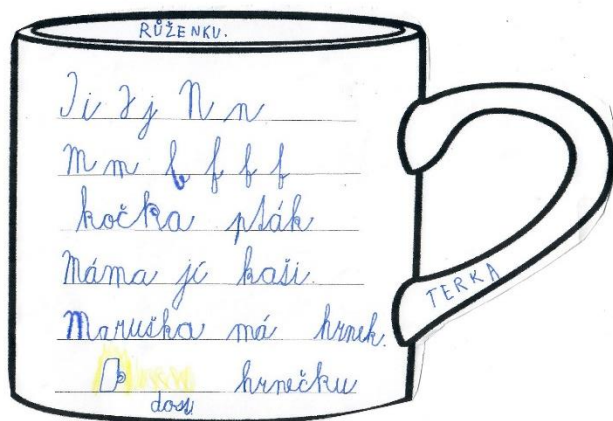 RŮŽENKU.
Ii Jj N n
M m b f f f
kočka pták
Máma jí kaši.
Maruška má hrnek.
hrnečku
dosti
TERKA